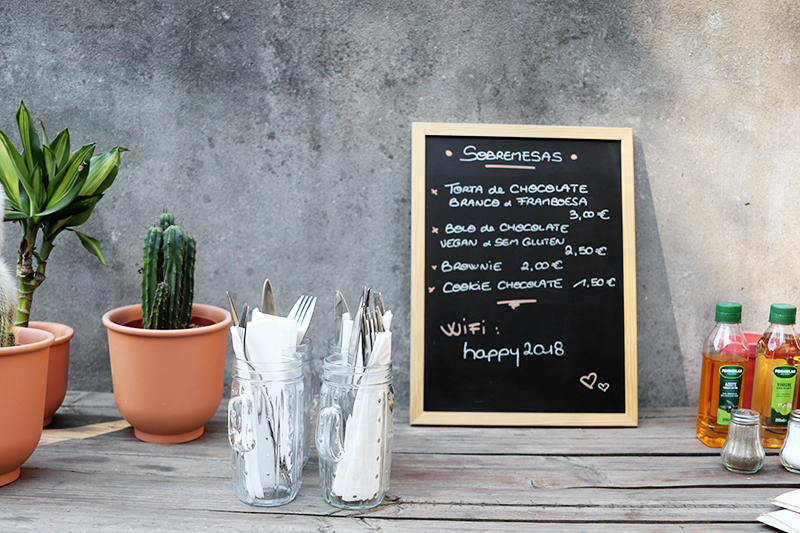 SOBREMESAS
TORTA de CHOCOLATE
BRANCO e FRAMBOESA
3,00€
BOLO de CHOCOLATE
VEGAN e SEM GLUTEN
2,50€
BROWNIE 2,00€
COOKIE CHOCOLATE 1,50€
WiFi:
happy2018
AZEITE
VINAGRE